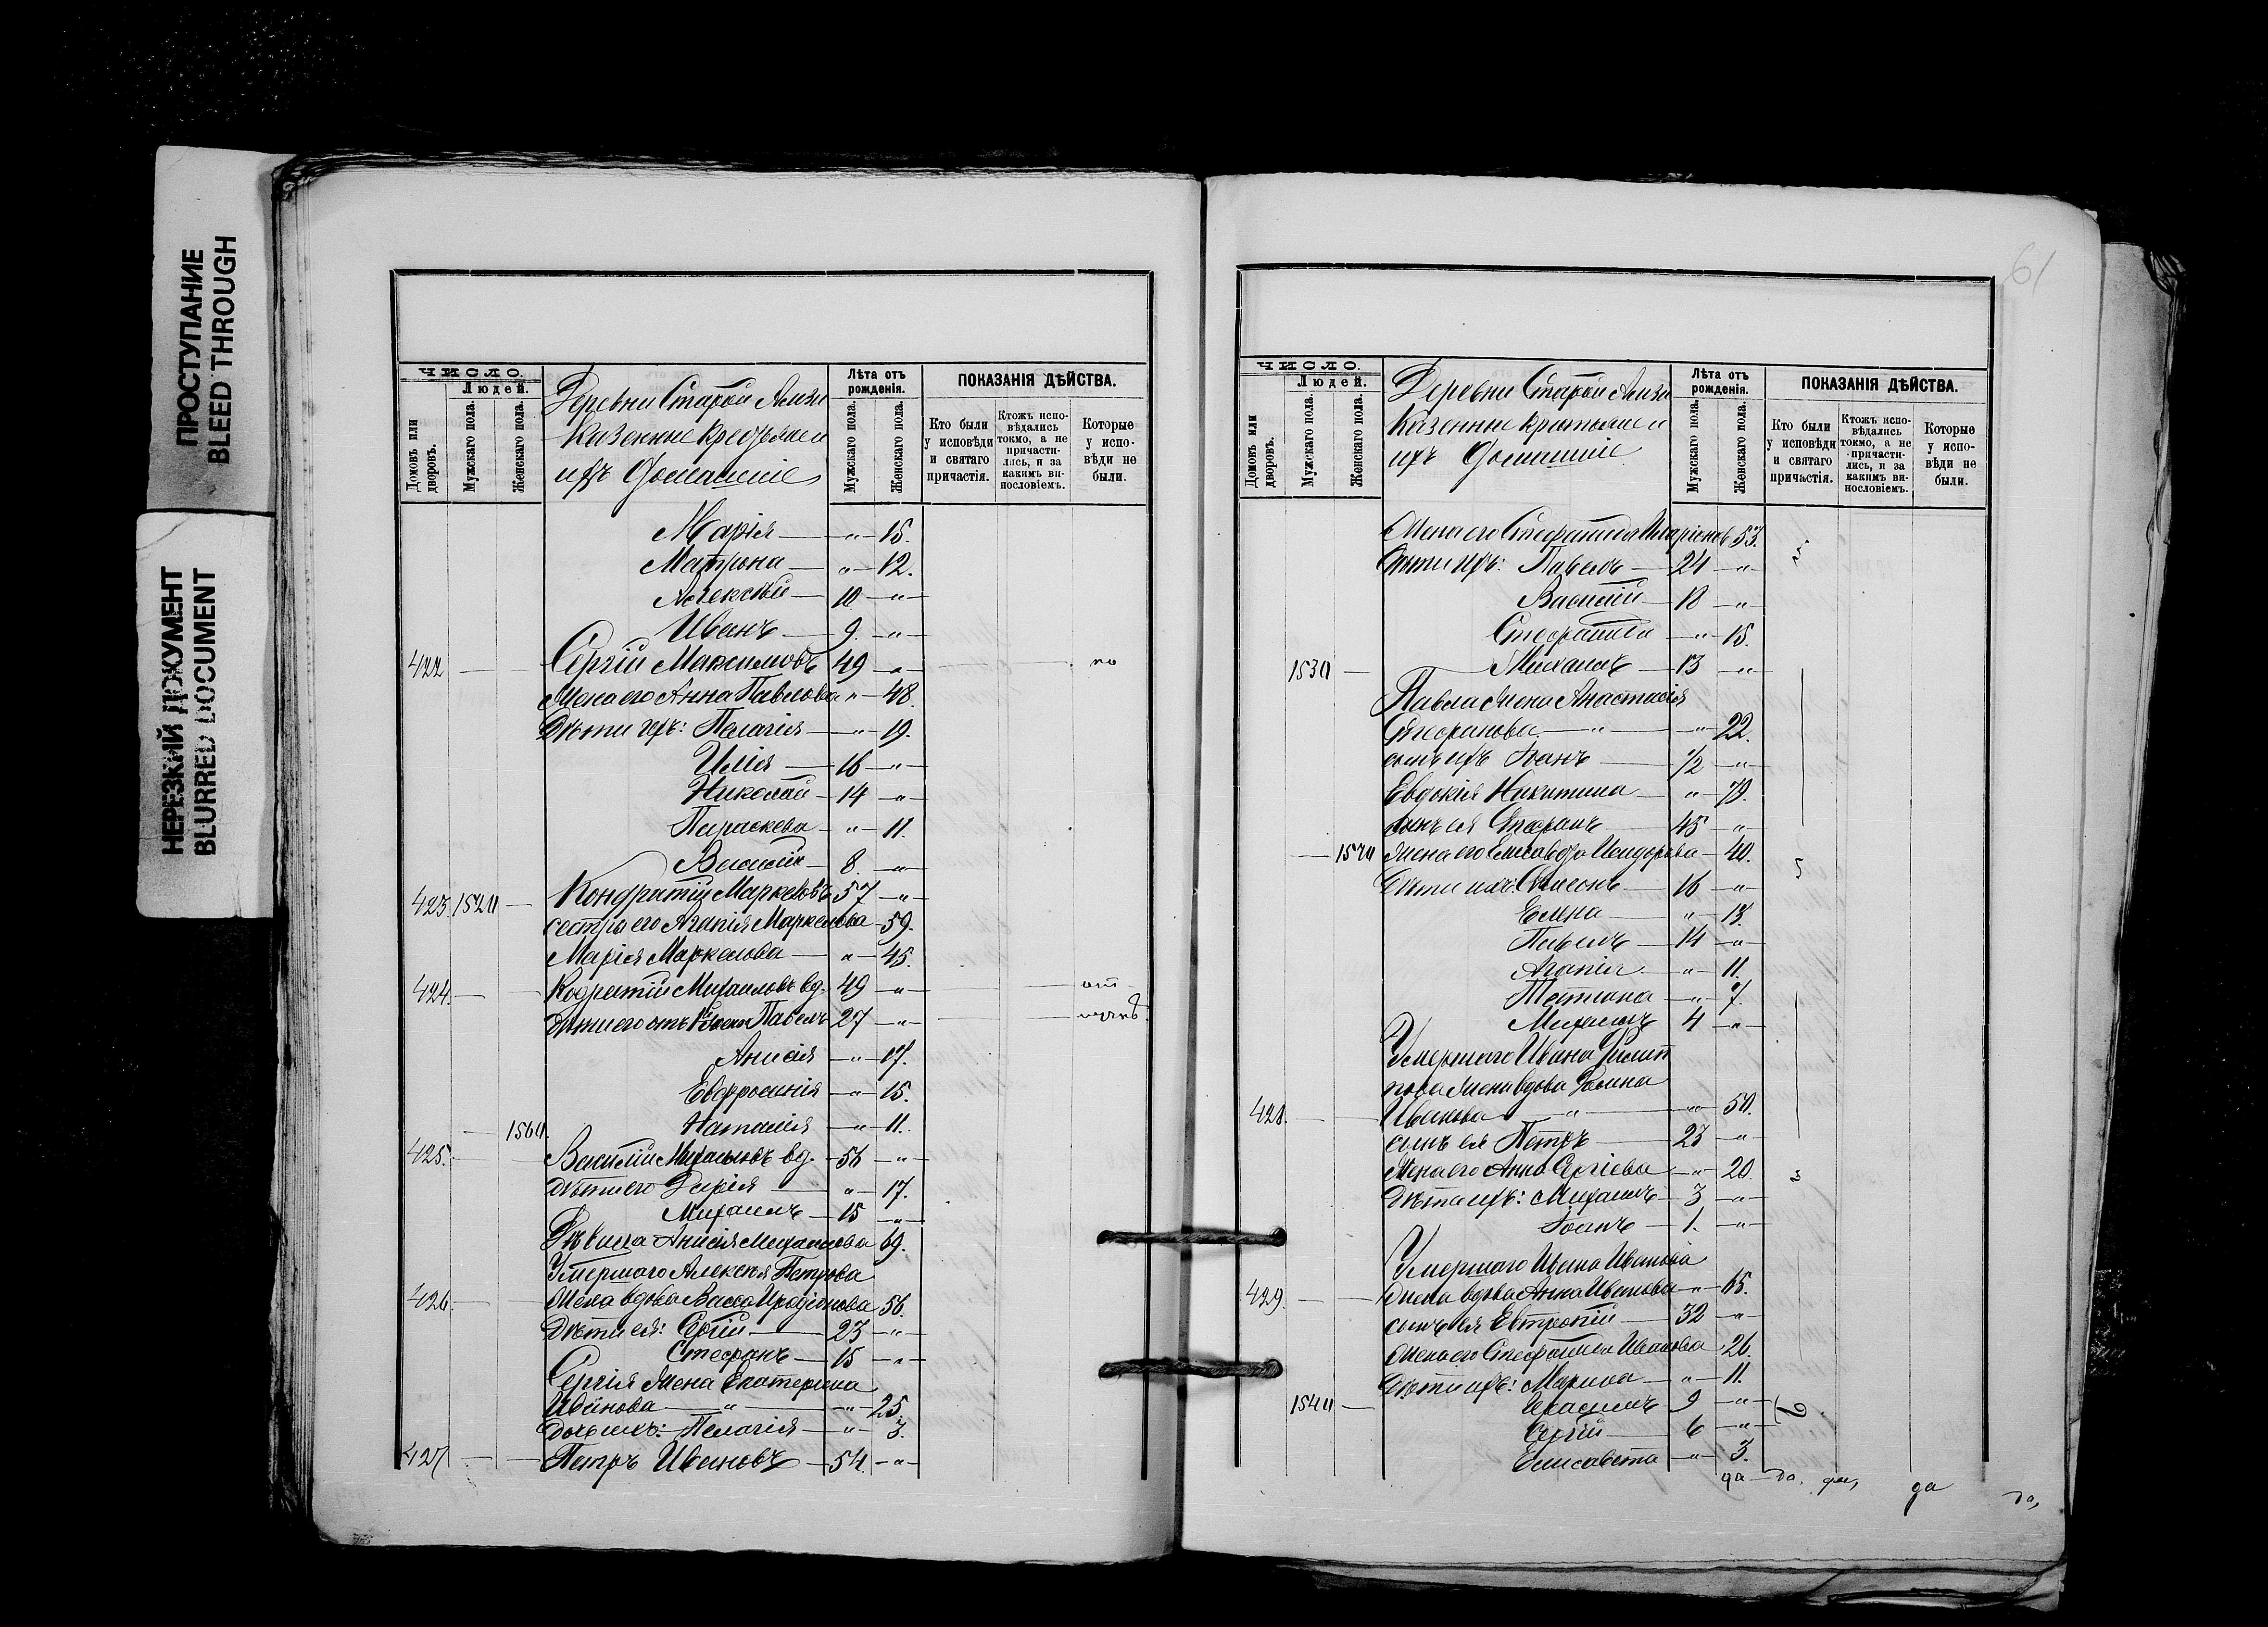 ПРОСТУПАНИЕ
BLEED THROUGH
НЕРЕЗКИЙ ДОКУМЕНТ
BLURRED DOCUMENT
ЧИСЛО.
Людей.
Домовъ или дворовъ.
Мужскаго пола.
Женскаго пола.
Деревни Старой
Казенные крестьяне и
ихъ домашніе
Лѣта отъ рожденія.
Мужскаго пола.
Женскаго пола.
ПОКАЗАНІЯ ДѢЙСТВА.
Кто были у исповѣди и святаго причастія.
Ктожъ исповѣдались токмо, а не причастились, и за какимъ винословіемъ.
Которые у исповѣди не были.
Марія — " — 15.
Матрона — " — 12.
Алексѣй — 10 — "
Иванъ — 9. — "
422 — Сергій Максимовъ 49 — "
Жена его Анна Павлова " — 48.
Дѣти ихъ: Пелагія — " — 19.
Илія — 16 — "
Николай — 14 — "
Параскева — " — 11.
Василій — 8. — "
423. 1520 — Кондратій Маркеловъ 57 — "
сестры его Агапія Маркелова — 59.
Марія Маркелова — " — 45.
424. — Кодратій Михаиловъ вд. 49 — "
дѣти его отъ Павелъ 27 — "
Анисія — " — 17.
Евфросинія — " — 15.
1560. Наталія — " — 11.
425. — Василій Михаиловъ вд. 56 — "
дѣти его Дарія — " — 17.
Михаилъ — 15 — "
Дѣвица Анисія Михаилова 69.
Умершаго Алексѣя Петрова
426. — Жена вдова Васса Иродіонова 56.
Дѣти ея: Сергій — 23 — "
Стефанъ — 15 — "
Сергія жена Екатерина
Иванова — " — " — 25.
дочь ихъ: Пелагія — " — 3.
427 — Петръ Ивановъ — 54. — "
61
ЧИСЛО.
Людей.
Домовъ или дворовъ.
Мужскаго пола.
Женскаго пола.
Деревни Старой
Казенные крестьяне и
ихъ домашніе
Лѣта отъ рожденія.
Мужскаго пола.
Женскаго пола.
ПОКАЗАНІЯ ДѢЙСТВА.
Кто были у исповѣди и святаго причастія.
Ктожъ исповѣдались токмо, а не причастились, и за какимъ винословіемъ.
Которые у исповѣди не были.
Жена его Стефанида Иларіонов 53.
Дѣти ихъ: Павелъ — 24 — "
Василій — 18 — "
Стефанида — " — 15.
1530 — Михаилъ — 13 — "
Павла жена Анастасія
Стефанова — " — " 22.
сынъ ихъ Іоанъ — 1/2 — "
Евдокія Никитина — " — 79.
сынъ ея Стефанъ — 45 — "
1570 Жена его Елисавета Исидорова — 40. 5
Дѣти ихъ: Симеонъ — 16 — "
Елена — " — 13.
Павелъ — 14 — "
Агапія — " — 11.
Татіана — " — 7.
Михаилъ — 4 — "
Умершаго Ивана Филип
пова жена вдова
428. — Иванова — " — " — 50.
сынъ ея Петръ — 23 — "
Жена его Анна Сергіева — " — 20. 3
Дѣти ихъ: Михаилъ — 3 — "
Іоанъ — 1. — "
Умершаго Ивана Иванова
429. — Жена вдова Анна Иванова — " — 65.
сынъ ея Евтропій — 32 — "
Жена его Стефанида Иванова 26.
Дѣти ихъ: Марина — " — 11.
1540 — Герасимъ 9 — " 6
Сергій — 6 — "
Елисавета — " — 3.
да — да, да, да да,